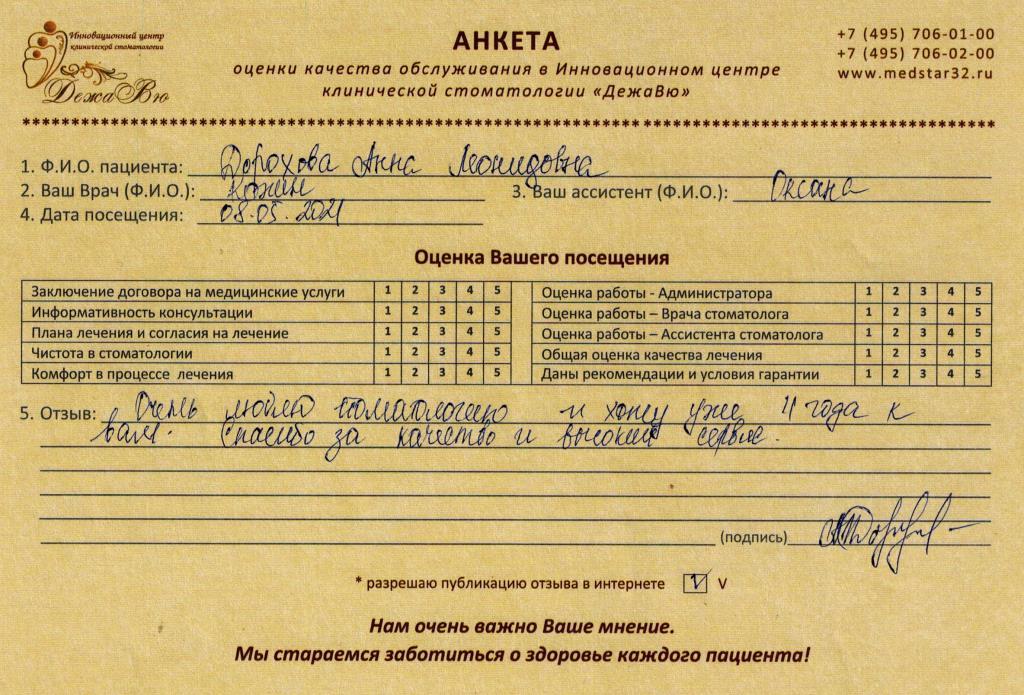 Инновационный центр
клинической стоматологии
ДежаВю
АНКЕТА
оценки качества обслуживания в Инновационном центре
клинической стоматологии «ДежаВю»
+7 (495) 706-01-00
+7 (495) 706-02-00
www.medstar32.ru
1. Ф.И.О. пациента: Дорохова Анна Леонидовна
2. Ваш Врач (Ф.И.О.): Кожин 3. Ваш ассистент (Ф.И.О.): Оксана
4. Дата посещения: 08.05.2021
Оценка Вашего посещения
Заключение договора на медицинские услуги 1 2 3 4 5 Оценка работы - Администратора 1 2 3 4 5
Информативность консультации 1 2 3 4 5 Оценка работы – Врача стоматолога 1 2 3 4 5
Плана лечения и согласия на лечение 1 2 3 4 5 Оценка работы – Ассистента стоматолога 1 2 3 4 5
Чистота в стоматологии 1 2 3 4 5 Общая оценка качества лечения 1 2 3 4 5
Комфорт в процессе лечения 1 2 3 4 5 Даны рекомендации и условия гарантии 1 2 3 4 5
5. Отзыв: Очень люблю стоматологию и хожу уже 4 года к
вам. Спасибо за качество и высокий сервис.
(подпись)
* разрешаю публикацию отзыва в интернете V V
Нам очень важно Ваше мнение.
Мы стараемся заботиться о здоровье каждого пациента!